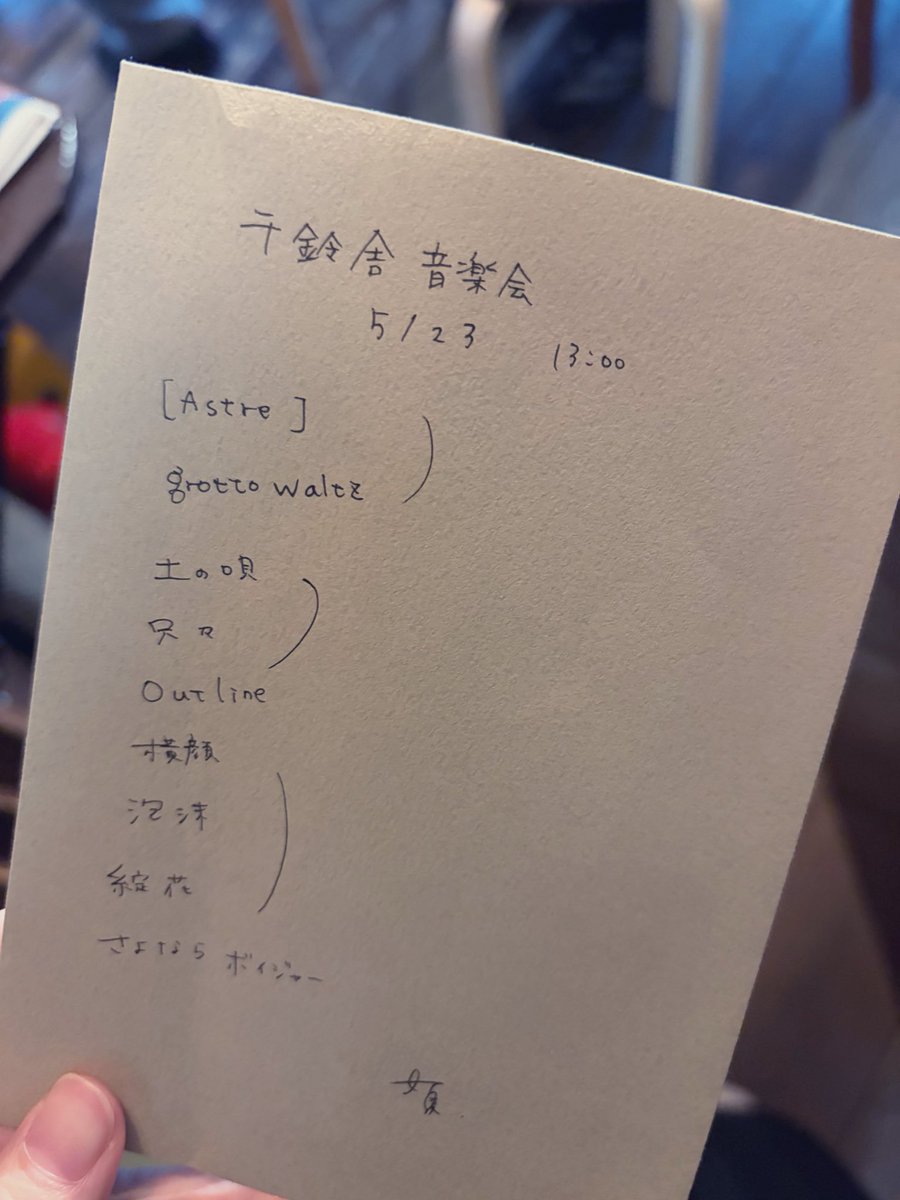 千鈴舎 音楽会
5/23 13:00
[Astre]
grotto waltz
土の唄
只々
Outline
横顔
泡沫
綻花
さよなら ボイジャー